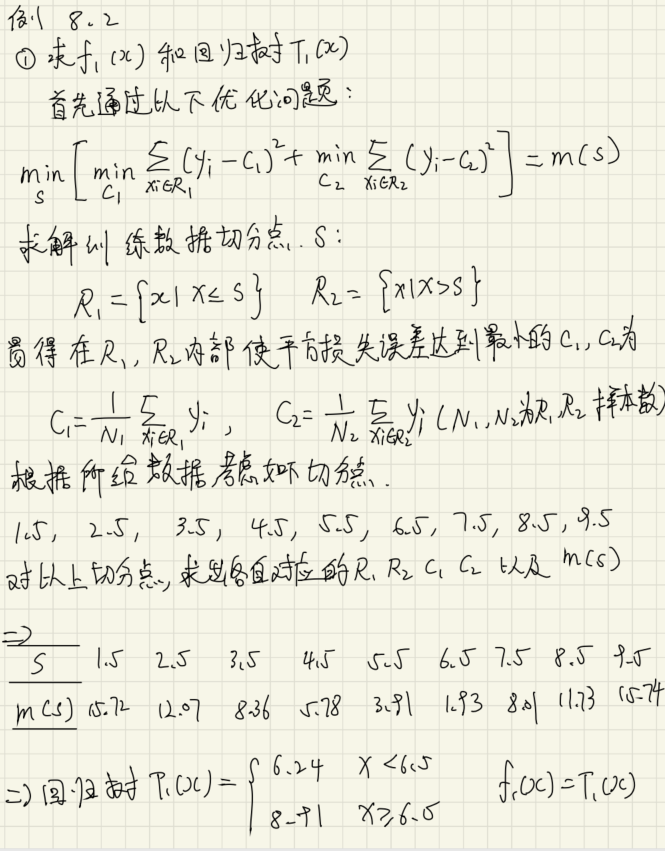 例 8.2
① 求f₁(x) 和回归树T₁(x)
首先通过以下优化问题:
min_S [ min_{C₁} Σ_{xi∈R₁} (yi-C₁)² + min_{C₂} Σ_{xi∈R₂} (yi-C₂)² ] = m(s)
求解训练数据切分点. S:
R₁ = {x| x≤ s}   R₂ = {x|x>s}
易得在R₁, R₂内部使平方损失误差达到最小的C₁, C₂为
C₁= 1/N₁ Σ_{xi∈R₁} yi ,   C₂= 1/N₂ Σ_{xi∈R₂} yi (N₁,N₂为R₁,R₂ 样本数)
根据所给数据考虑如下切分点.
1.5, 2.5, 3.5, 4.5, 5.5, 6.5, 7.5, 8.5, 9.5
对以上切分点, 求出各自对应的R₁ R₂ C₁ C₂ 以及 m(s)
⇒
S 1.5 2.5 3.5 4.5 5.5 6.5 7.5 8.5 9.5
m(s) 15.72 12.07 8.36 5.78 3.91 1.93 8.01 11.73 15.74
⇒ 回归树 T₁(x) = { 6.24 x<6.5   f₁(x)=T₁(x)
8.91 x≥6.5